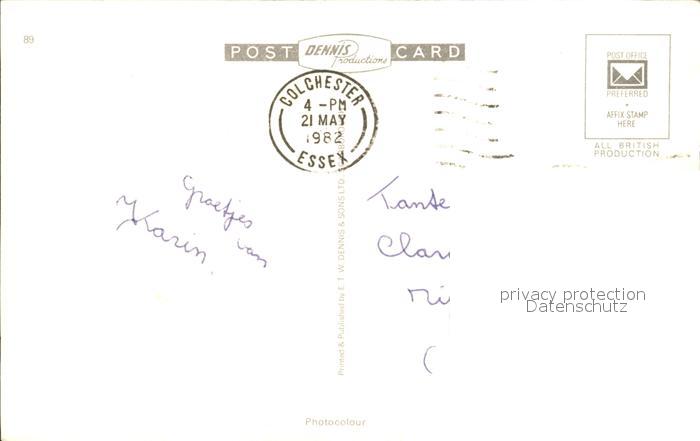 89
POST DENNIS Productions CARD
POST OFFICE
PREFERRED
AFFIX STAMP
HERE
ALL BRITISH
PRODUCTION
COLCHESTER
4 - PM
21 MAY
1982
ESSEX
Groetjes
van
Karin.
Printed & Published by E. T. W. DENNIS & SONS LTD
Tante
Clar
Mi
privacy protection
Datenschutz
Photocolour